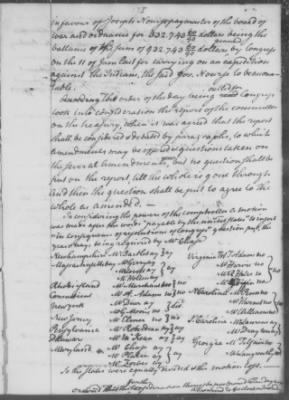 in favour of Joseph Nourse paymaster of the board of
war and ordnance for 632.743 dollars being the
ballance of the sum of 932.743 dollars by Congress
on the 11 of June last for carrying on an expedition
against the Indians, the said Jos. Nourse to be accoun-
table.
the order of the day being called for Congress
took into consideration the report of the committee
on the treasury, when it was agreed that the report
shall be considered & debated by paragraphs, to which
amendments may be offered & questions taken on
the several amendments, but no question shall be
put on the report till the whole is gone through
and then the question shall be put to agree to the
whole as amended.
In considering the power of the comptroller a motion
was made after the words "payable by the united states" to insert
"in consequence of resolutions of Congress" question put, the
yeas & nays being required by Mr Chase
Newhampshire Mr Bartlet ay } ay
Massachusetts bay Mr Gerry ay
Mr Lovell ay
Mr Holten ay
} ay
Rhode island Mr Marchant no
Connecticut Mr A. Adams no
New york Mr Duer ay
Mr G. Morris no
New Jersey Mr Elmer no
Pensylvania Mr Roberdeau ay
Delaware Mr Mc Kean no
Maryland Mr Chase ay
Mr Plater ay
Mr Forbes ay
} ay
Virginia
Mr Harvie no
N Carolina Mr Penn no
Mr Williams no
S Carolina Mr Laurens no
Mr Drayton
Georgia Mr Telfair no
Mr Langworthy
So the states were equally divided & the motion lost.